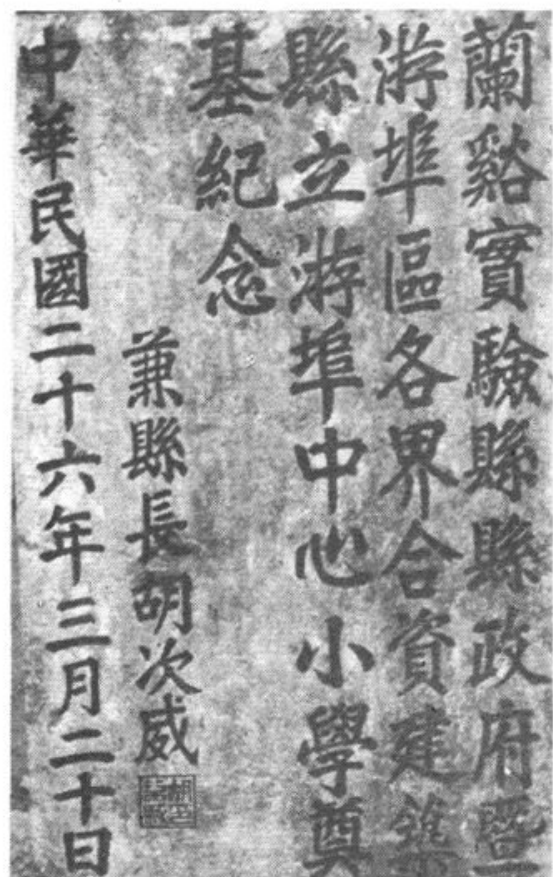 蘭谿實驗縣縣政府暨
游埠區各界合資建築
縣立游埠中心小學奠
基紀念
兼縣長胡次威
中華民國二十六年三月二十日